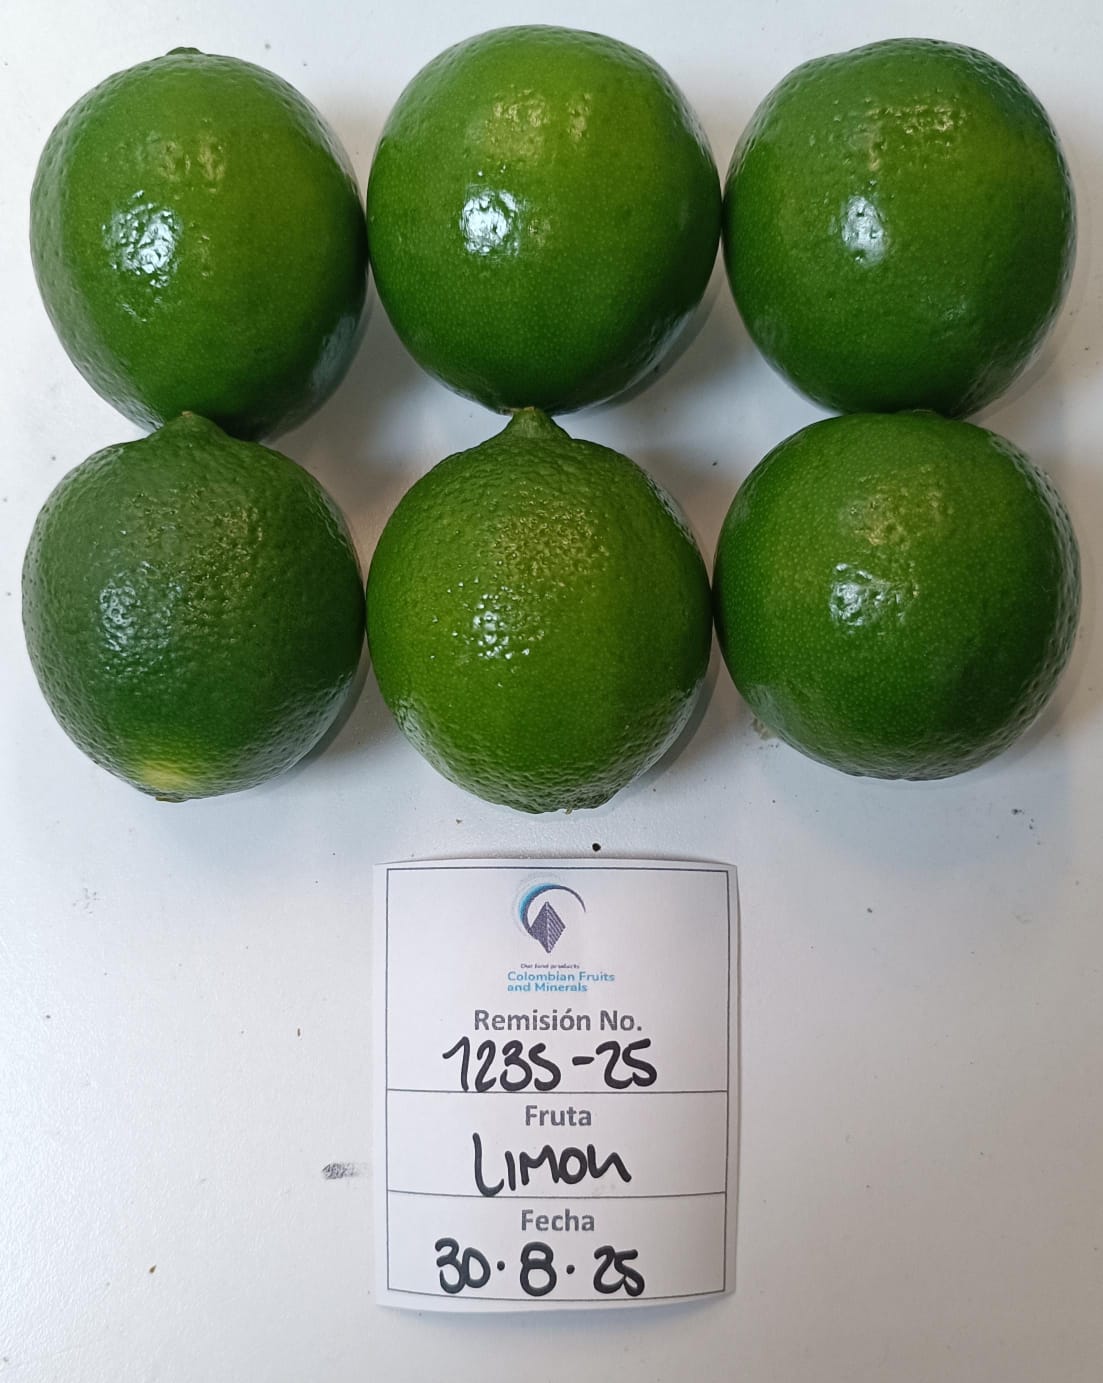 Our land products
Colombian Fruits
and Minerals
Remisión No.
1235-25
Fruta
Limon
Fecha
30·8·25